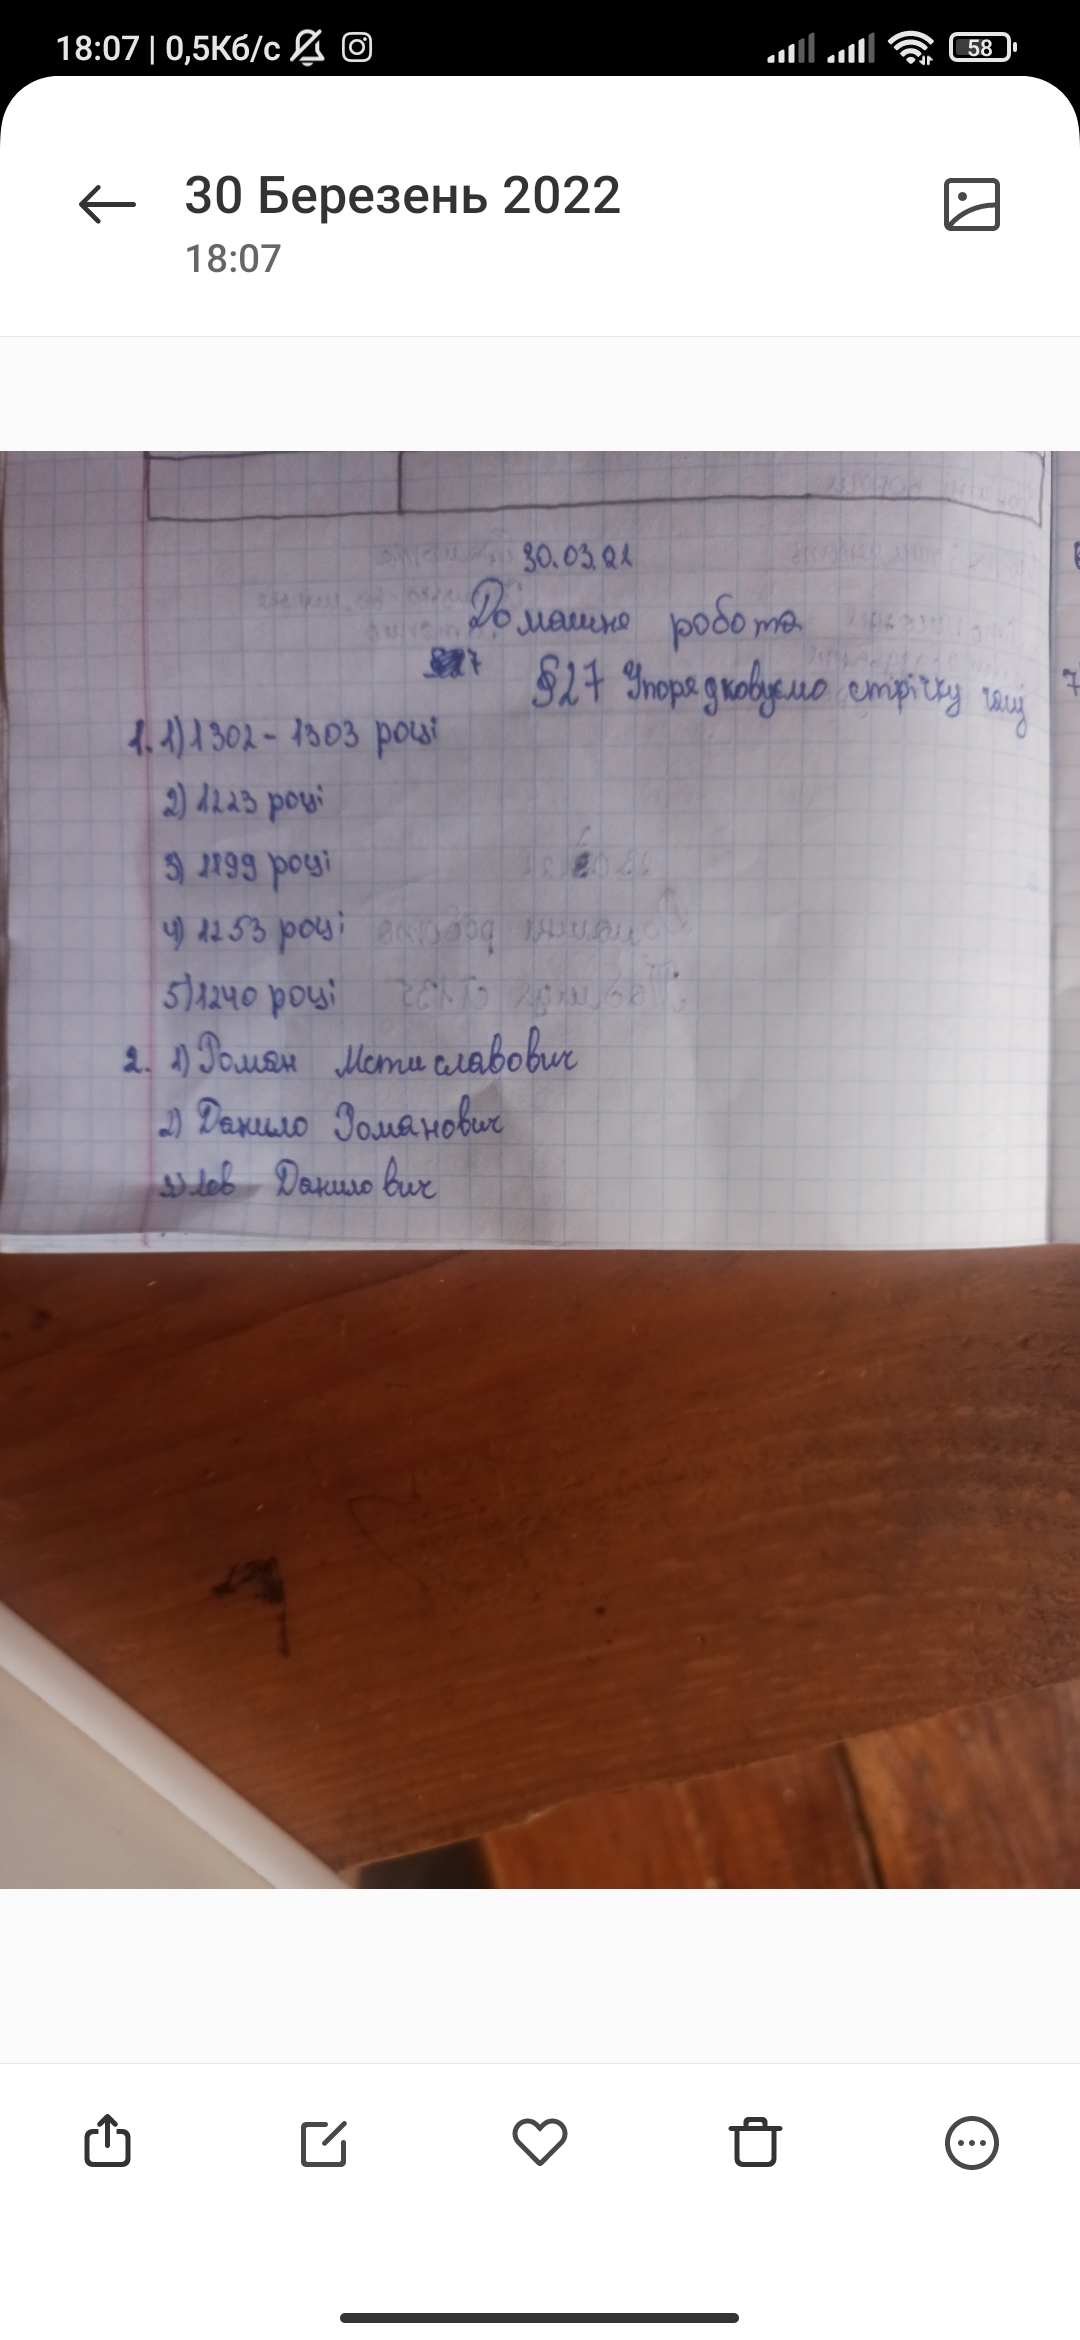 18:07 | 0,5Кб/с
58
30 Березень 2022
18:07
30.03.21
Домашнє робота
§27 Упорядковуємо стрічку часу
1. 1) 1302 - 1303 році
2) 1223 році
3) 1199 році
4) 1253 році
5) 1240 році
2. 1) Роман Мстиславович
2) Данило Романович
3) Лев Данилович